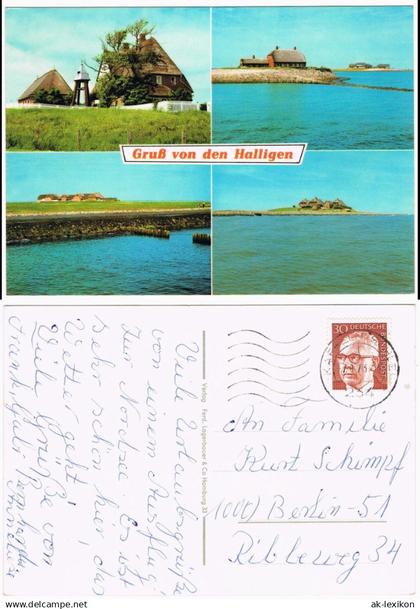 Gruß von den Halligen
Viele Urlaubsgrüße
von einem Ausflug
zur Nordsee. Es ist
sehr schön hier, das
Wetter geht.
Viele Grüße von
Verlag Ferd. Lagerbauer & Co Hamburg 33
30
DEUTSCHE BUNDESPOST
An Familie
Kurt Schimpf
1000) Berlin-51
Ribbeweg 34
ak-lexikon.com